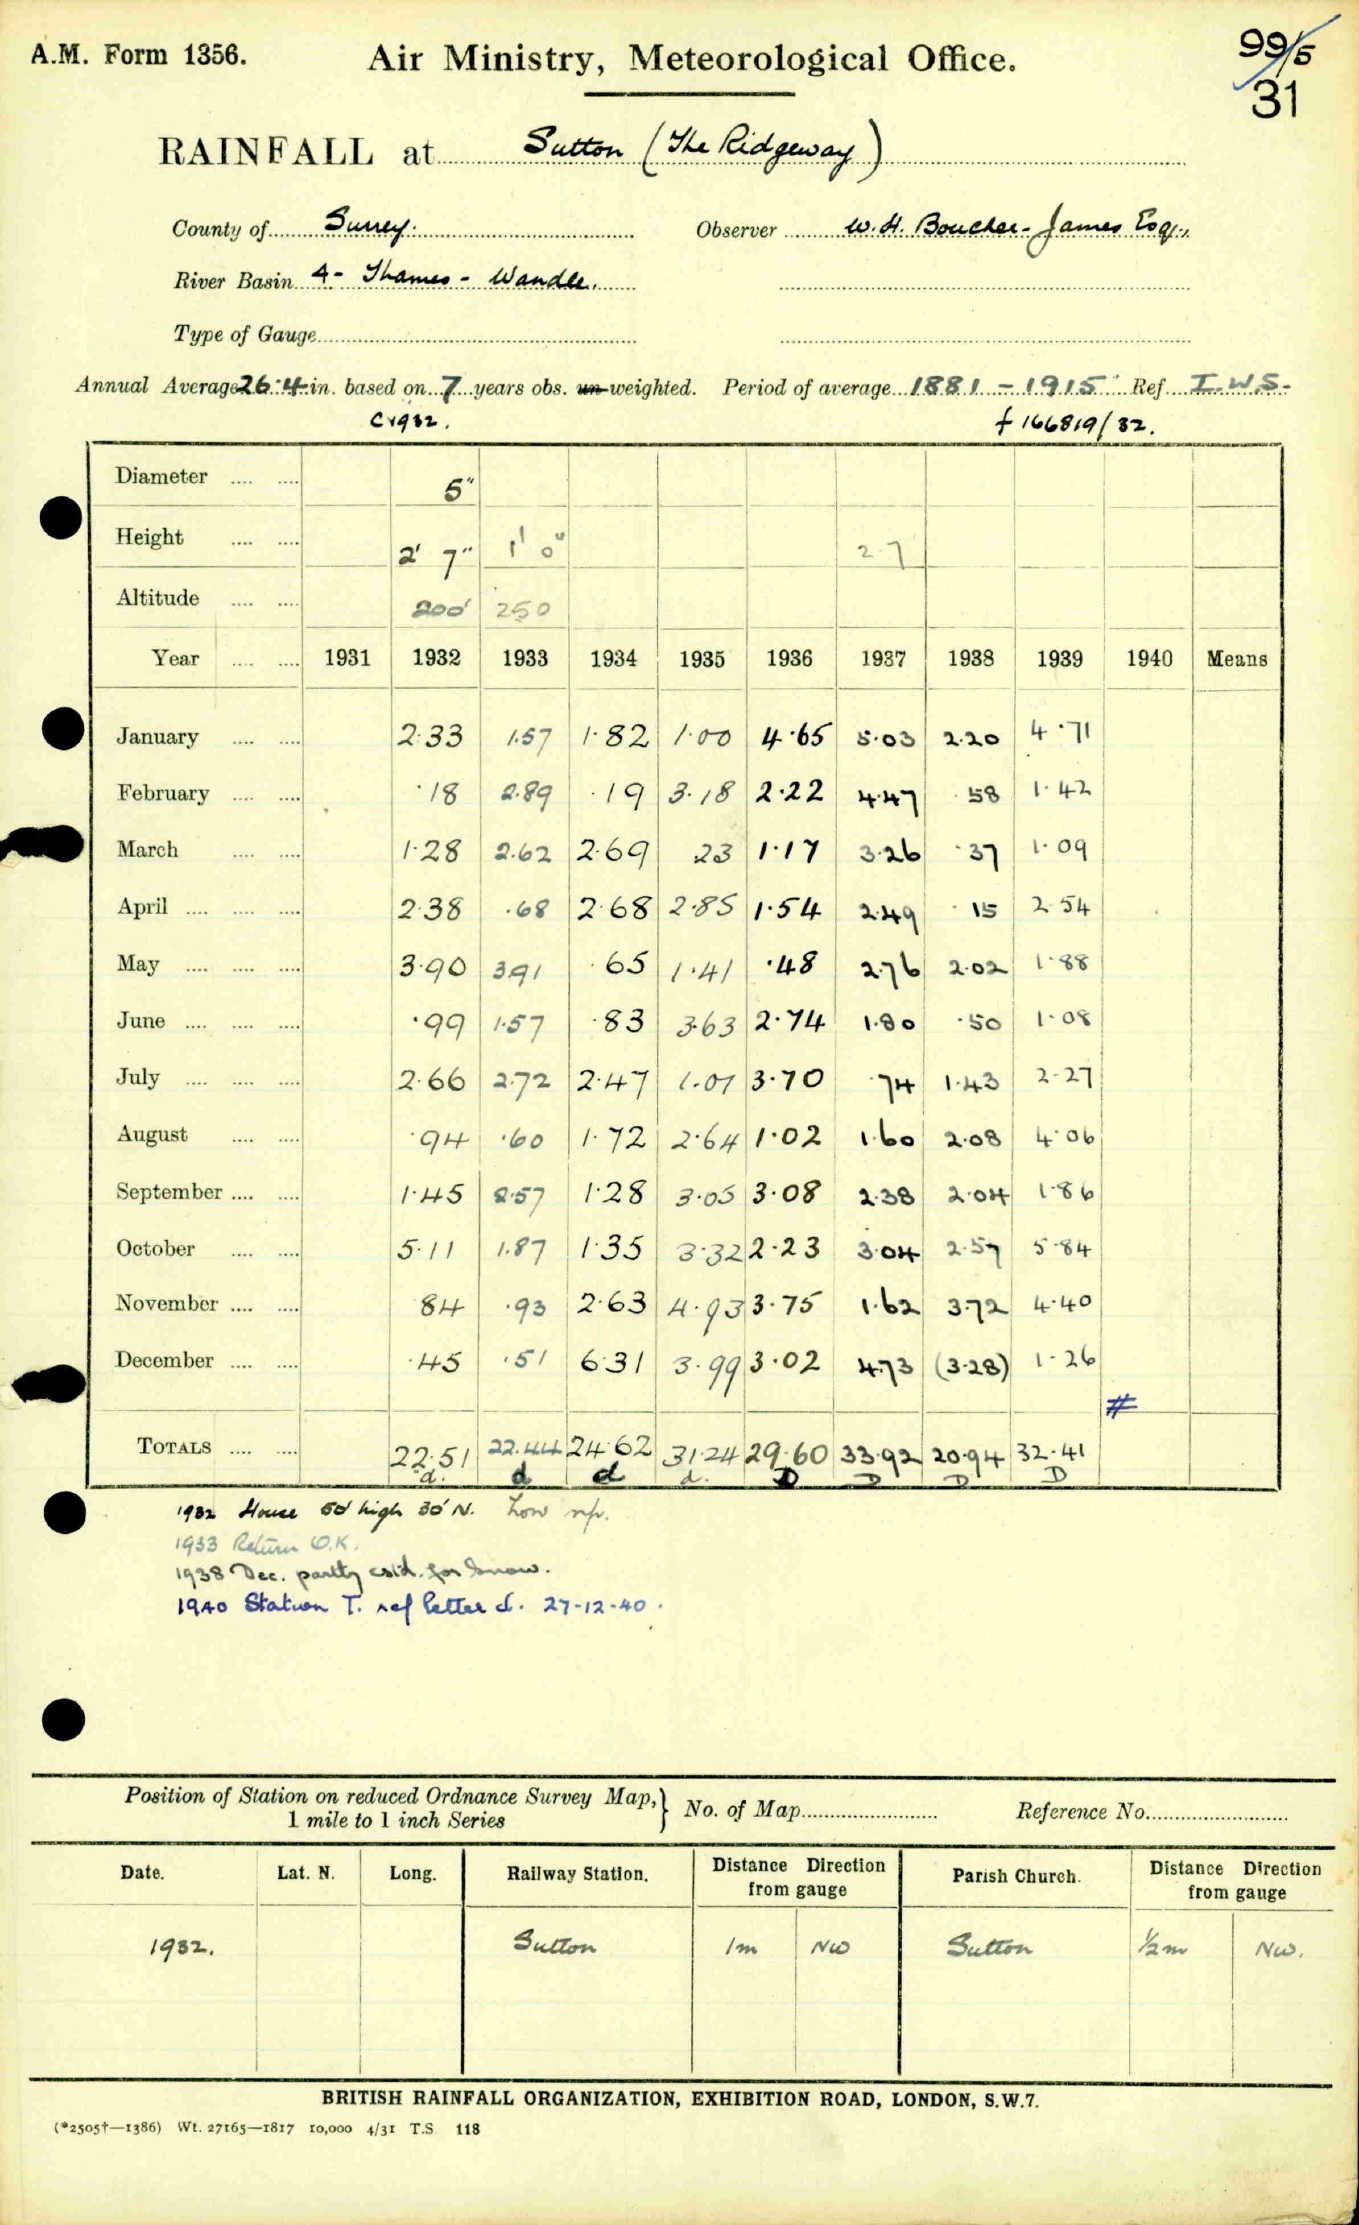 A.M. Form 1356.
Air Ministry, Meteorological Office.
99/5
31
RAINFALL at Sutton (The Ridgeway)
County of Surrey. Observer W. H. Boucher-James Esq.,
River Basin 4 - Thames - Wandle.
Type of Gauge
Annual Average 26.4 in. based on 7 years obs. un weighted. Period of average 1881 - 1915 Ref. I.W.S.
C1932. f 166819/32.
Diameter 5"
Height 2' 7" 1' 0" 2.7
Altitude 200' 250
Year 1931 1932 1933 1934 1935 1936 1937 1938 1939 1940 Means
January 2.33 1.57 1.82 1.00 4.65 5.03 2.20 4.71
February .18 2.89 .19 3.18 2.22 4.47 .58 1.42
March 1.28 2.62 2.69 23 1.17 3.26 .37 1.09
April 2.38 .68 2.68 2.85 1.54 2.49 .15 2.54
May 3.90 3.91 .65 1.41 .48 2.76 2.02 1.88
June .99 1.57 .83 3.63 2.74 1.80 .50 1.08
July 2.66 2.72 2.47 1.01 3.70 .74 1.43 2.27
August .94 .60 1.72 2.64 1.02 1.60 2.08 4.06
September 1.45 2.57 1.28 3.05 3.08 2.38 2.04 1.86
October 5.11 1.87 1.35 3.32 2.23 3.04 2.57 5.84
November 84 .93 2.63 4.93 3.75 1.62 3.72 4.40
December .45 .51 6.31 3.99 3.02 4.73 (3.28) 1.26
#
TOTALS 22.51 22.44 24.62 31.24 29.60 33.92 20.94 32.41
d. d d d. D D D D
1932 House 50' high 30' N. Low
1933 Return O.K.
1938 Dec. partly estd. for snow.
1940 Station T. ref letter d. 27-12-40.
Position of Station on reduced Ordnance Survey Map,} No. of Map Reference No.
1 mile to 1 inch Series
Date. Lat. N. Long. Railway Station. Distance Direction from gauge Parish Church. Distance Direction from gauge
1932. Sutton 1m NW Sutton ½m NW.
BRITISH RAINFALL ORGANIZATION, EXHIBITION ROAD, LONDON, S.W.7.
(*2505†—1386) Wt. 27165—1817 10,000 4/31 T.S. 118